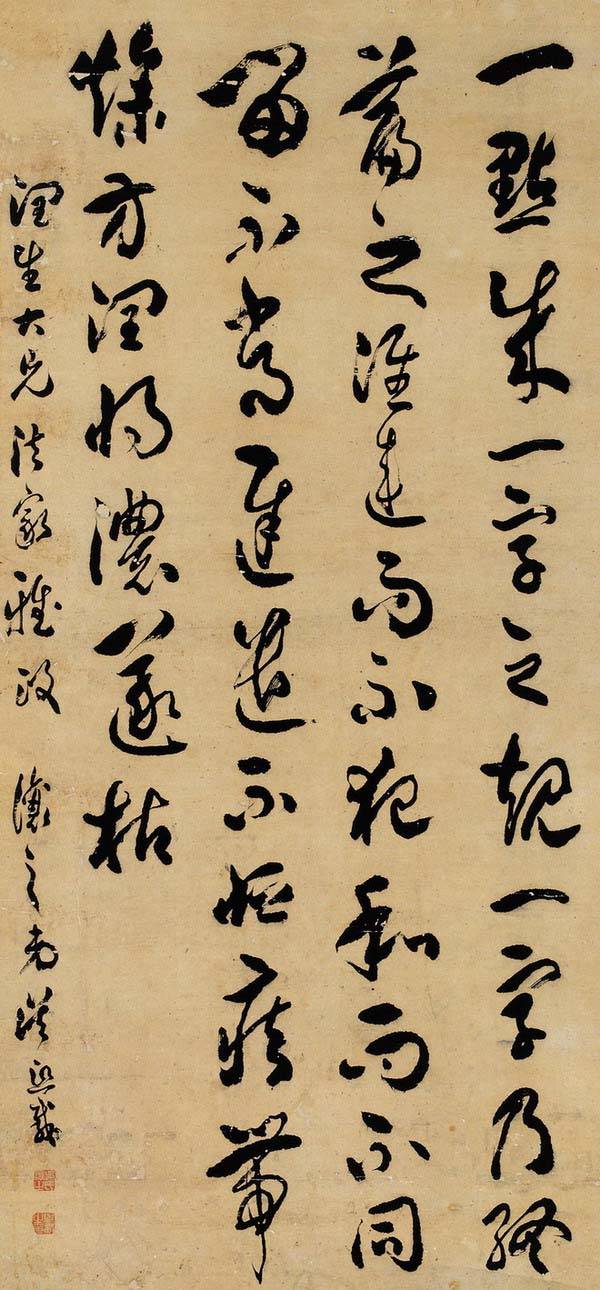 一點成一字之規一字乃終
篇之准違而不犯和而不同
留不常遲遣不恒疾帶
燥方潤將濃遂枯
潤生大兄法家雅政 讓之弟吳熙載